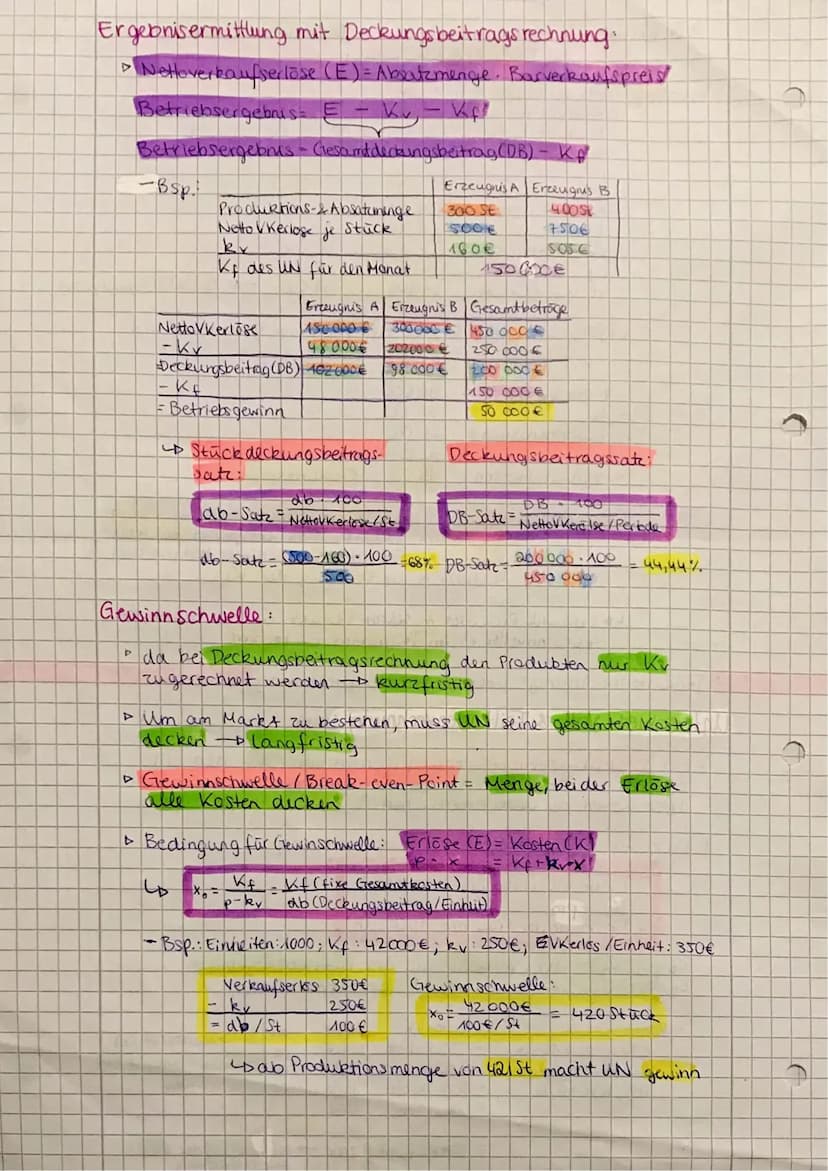 Ergebnisermittlung mit Deckungsbeitragsrechnung:
▹ Nettoverkaufserlöse (E) = Absatzmenge · Barverkaufspreis
Betriebsergebnis = E - Kv - Kf
Betriebsergebnis = Gesamtdeckungsbeitrag (DB) - Kf
- Bsp.: Erzeugnis A Erzeugnis B
Produktions- & Absatzmenge 300 St 400 St
Netto VKerlöse je Stück 500 € 750 €
kv 160 € 505 €
Kf des UN für den Monat 150 000 €
Erzeugnis A Erzeugnis B Gesamtbeträge
Netto VKerlöse 150 000 € 300 000 € 450 000 €
- Kv 48 000 € 202 000 € 250 000 €
Deckungsbeitrag (DB) 102 000 € 98 000 € 200 000 €
- Kf 150 000 €
= Betriebsgewinn 50 000 €
↳ Stückdeckungsbeitrags- Deckungsbeitragssatz:
satz:
db-Satz = db · 100 / Netto VKerlöse/St DB-Satz = DB · 100 / Netto VKerölse/Periode
db-Satz = (500-160) · 100 / 500 = 68% DB-Satz = 200 000 · 100 / 450 000 = 44,44%
Gewinnschwelle:
▹ da bei Deckungsbeitragsrechnung den Produkten nur Kv
zugerechnet werden → kurzfristig
▹ Um am Markt zu bestehen, muss UN seine gesamten Kosten
decken → langfristig
▹ Gewinnschwelle / Break-even-Point = Menge, bei der Erlöse
alle Kosten decken
▹ Bedingung für Gewinschwelle: Erlöse (E) = Kosten (K)
p · x = Kf + kv · x
↳ x₀ = Kf / p - kv = Kf (fixe Gesamtkosten) / db (Deckungsbeitrag/Einheit)
- Bsp.: Einheiten: 1000; Kf: 42000 €; kv: 250€; EVKerlös /Einheit: 350€
Verkaufserlös 350€ Gewinnschwelle:
- kv 250€ x₀ = 42 000€ / 100 €/St = 420 Stück
= db / St 100 €
↳ ab Produktionsmenge von 421 St macht UN gewinn